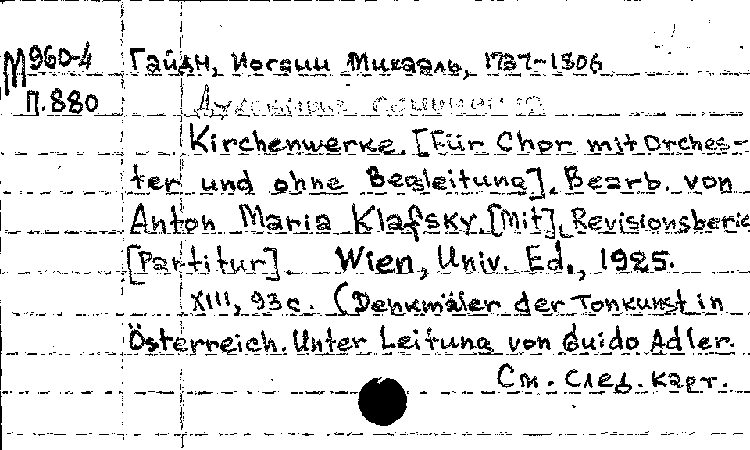 М 960-4 Гайдн, Иоганн Михаэль, 1737-1806
П.880 Духовные сочинения
Kirchenwerke. [Für Chor mit Orches-
ter und ohne Begleitung]. Bearb. von
Anton Maria Klafsky. [Mit], Revisionsberic
[Partitur]. Wien, Univ. Ed., 1925.
XIII, 93 c. (Denkmäler der Tonkunst in
Österreich. Unter Leitung von Guido Adler.
См. след. карт.